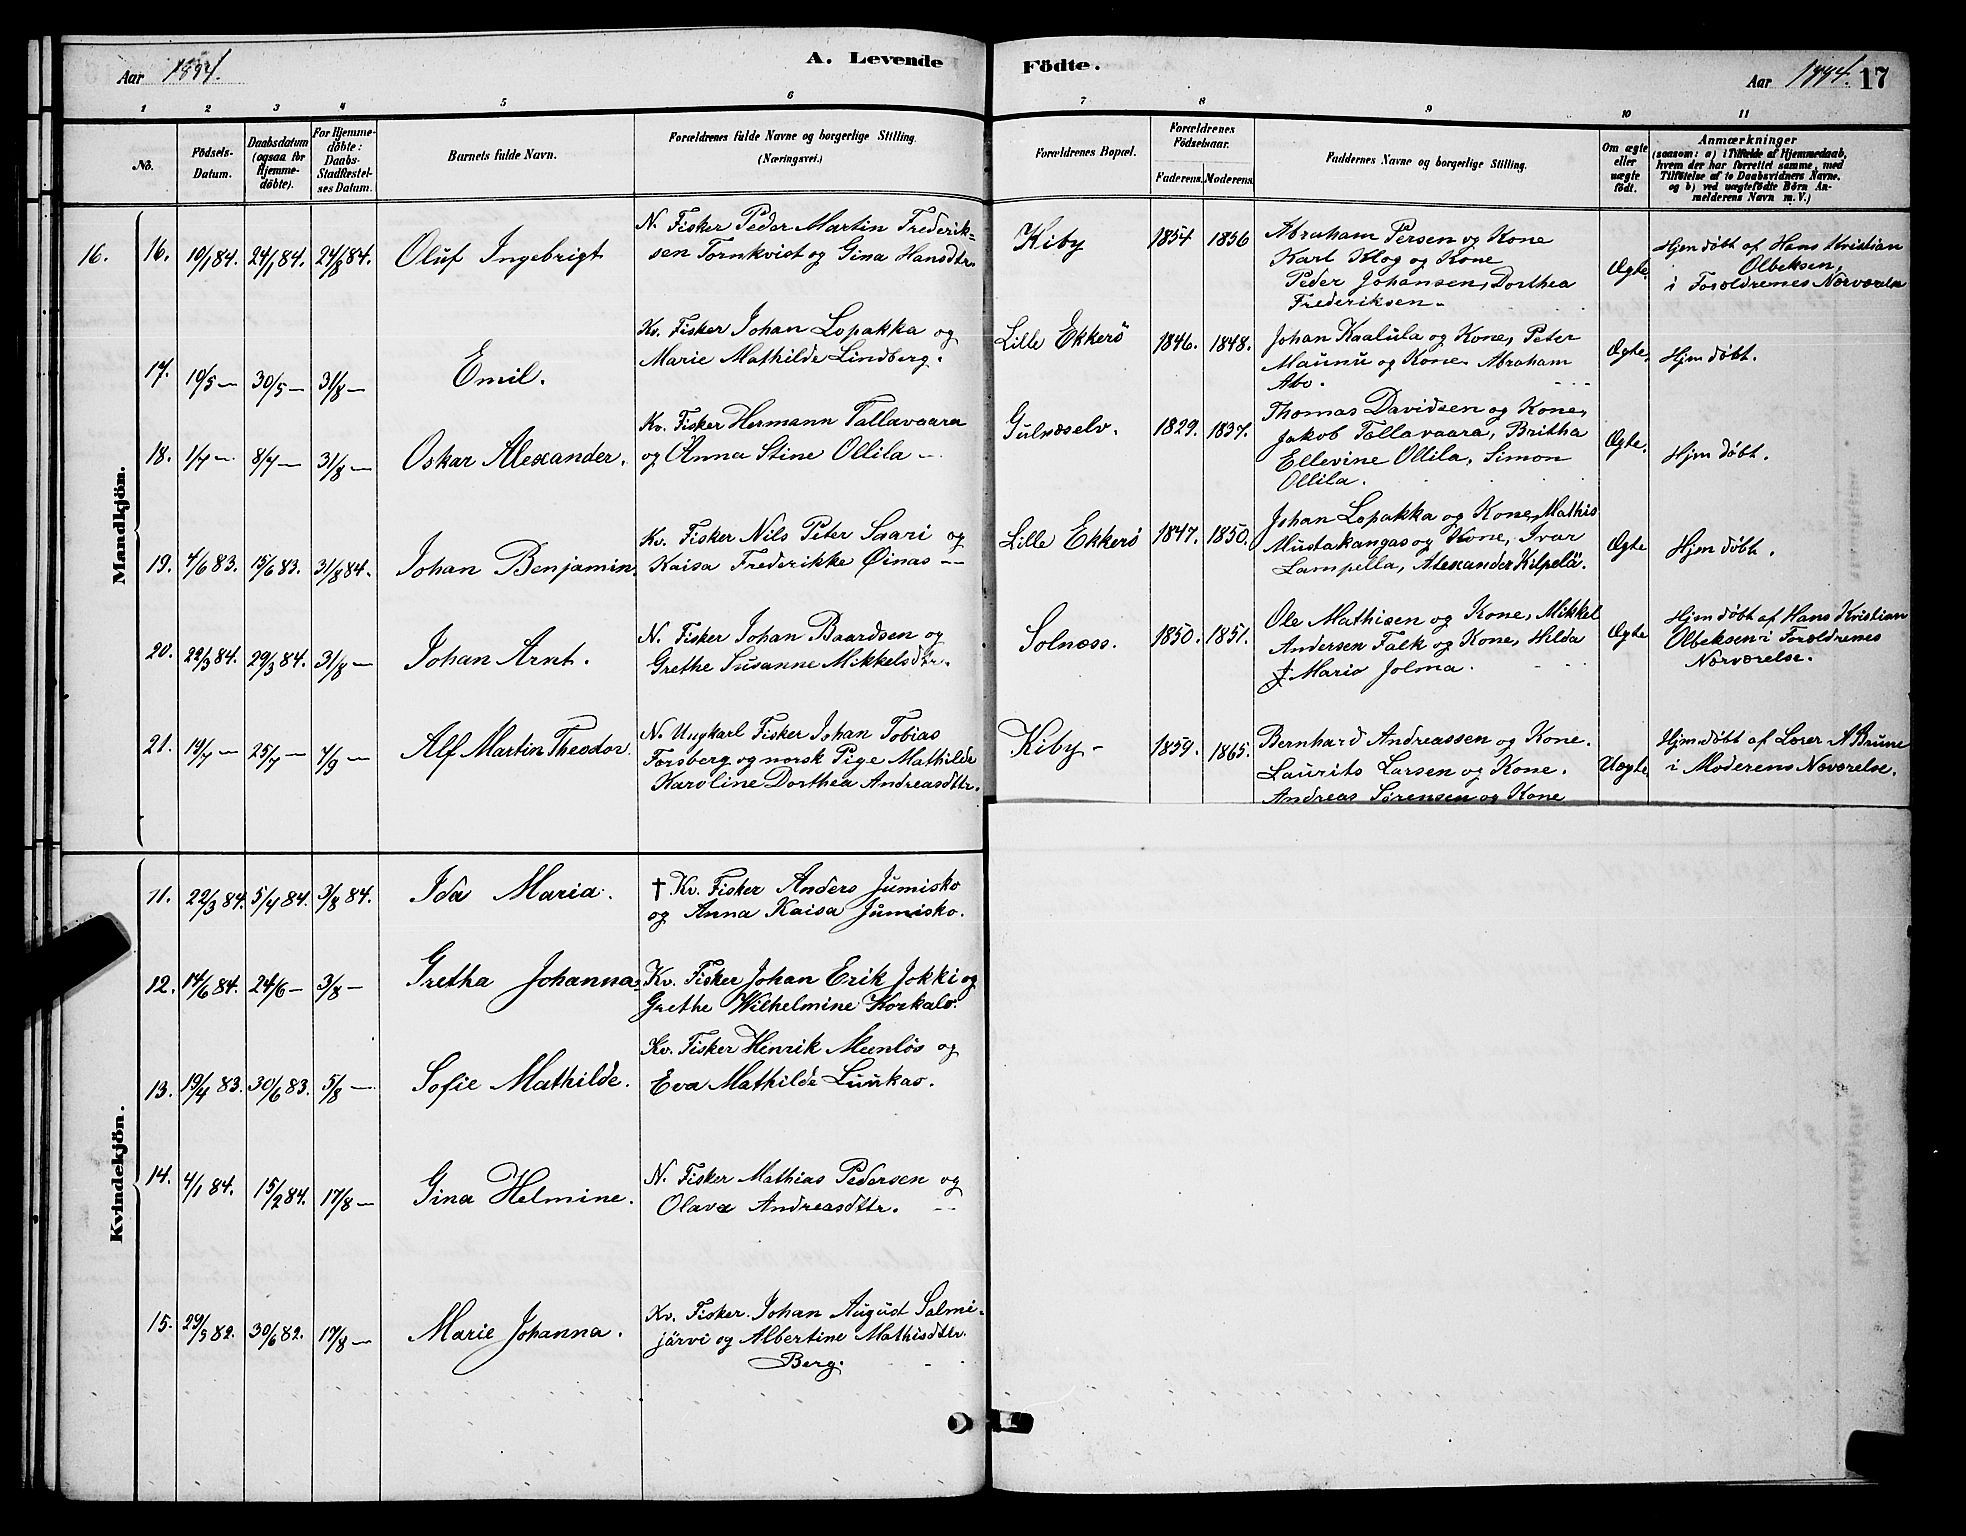 Aar 1884.
A. Levende
Födte.
Aar 1884. 17
1 2 3 4 5 6 7 8 9 10 11
No.
Födsels-Datum.
Daabsdatum (ogsaa for Hjemme-döbte).
For Hjemme-döbte: Daabs-Stadfæstel-ses Datum.
Barnets fulde Navn.
Forældrenes fulde Navne og borgerlige Stilling. (Næringsvei.)
Forældrenes Bopæl.
Forældrenes Födselsaar.
Faderens. Moderens.
Faddernes Navne og borgerlige Stilling.
Om ægte eller uægte födt.
Anmærkninger
(saasom: a) i Tilfælde af Hjemmedaab, hvem der har forrettet samme, med Tilföielse af to Daabsvidners Navne, og b) ved uægtefödte Börn An-melderens Navn m. V.)
Mandkjön.
16. 16. 19/1 84. 24/1 84. 24/8 84. Oluf Ingebrigt
N. Fisker Peder Martin Frederik-
sen Tornkvist og Gina Hansdtr.
Kiby 1854 1856
Abraham Persen og Kone
Karl Klog og Kone
Peder Johansen, Dorthea
Frederiksen.
Ægte.
Hjemdøbt af Hans Kristian
Olbeksen,
i Forældrenes Nærværelse
17. 19/5 — 30/5 — 31/8 — Emil.
Kv. Fisker Johan Lopakka og
Marie Mathilde Lindberg.
Lille Ekkerö 1846. 1848.
Johan Kaalula og Kone, Peter
Maunu og Kone. Abraham
Abo.
Ægte.
Hjmdøbt.
18. 1/7 — 8/7 — 31/8 — Oskar Alexander.
Kv. Fisker Hermann Tallavaara
og Anna Stine Ollila —
Gulnæselv. 1829. 1837.
Thomas Davidsen og Kone,
Jakob Tallavaara, Britha
Ellevine Ollila, Simon
Ollila.
Ægte.
Hjmdøbt.
19. 4/6 83. 15/6 83. 31/8 84. Johan Benjamin.
Kv. Fisker Nils Peter Saari og
Kaisa Frederikke Øinas —
Lille Ekkerö 1847. 1850.
Johan Lopakka og Kone, Mathis
Mustakangas og Kone, Ivar
Lampella, Alexander Kilpelä.
Ægte
Hjmdøbt.
20. 22/3 84. 29/3 84. 31/8 — Johan Arnt.
N. Fisker Johan Baardsen og
Grethe Susanne Mikkelsdtr.
Solnæss. 1850. 1851.
Ole Mathisen og Kone, Mikkel
Andersen Falk og Kone, Hilda
Maria Jolma.
Ægte
Hjmdøbt af Hans Kristian
Olbeksen i Forældrenes
Nærværelse.
21. 19/7 — 25/7 — 4/9 — Alf Martin Theodor.
N. Ungkarl Fisker Johan Tobias
Forsberg og norsk Pige Mathilde
Karoline Dorthea Andreasdttr.
Kiby — 1859. 1865.
Bernhard Andreassen og Kone.
Laurits Larsen og Kone.
Andreas Sørensen og Kone
Uægte
Hjmdøbt af Lærer A Brune
i Moderens Nærværelse.
Kvindekjön.
11. 22/3 84. 5/4 84. 3/8 84. Ida Maria.
† Kv. Fisker Anders Jumisko
og Anna Kaisa Jumisko.
12. 14/6 84. 24/6 — 3/8 — Gretha Johanna.
Kv. Fisker Johan Erik Jokki og
Grethe Wilhelmine Korkalo.
13. 19/4 83. 30/6 83. 5/8 — Sofie Mathilde.
Kv. Fisker Henrik Meenlös og
Eva Mathilde Luukas.
14. 4/1 84. 15/2 84. 17/8 — Gina Helmine.
N. Fisker Mathias Pedersen og
Olava Andreasdttr.
15. 29/3 82. 30/6 82. 17/8 — Marie Johanna.
Kv. Fisker Johan August Salmi-
järvi og Albertine Mathisdttr
Berg.